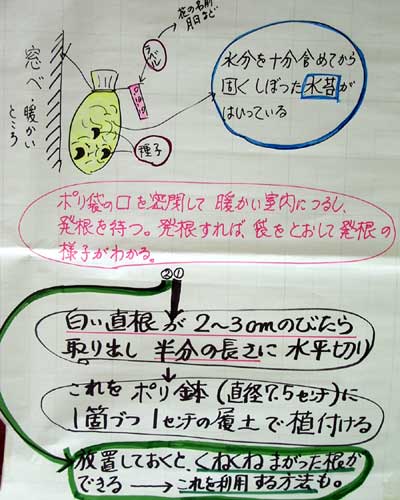 花の名前
月日など
ラベル
窓べ・暖かい
ところ
種子
水分を十分含めてから
固くしぼった水苔が
はいっている
ポリ袋の口を密閉して 暖かい室内につるし、
発根を待つ。発根すれば 袋をとおして発根の
様子がわかる。
②①
白い直根が 2〜3cmのびたら
取り出し 半分の長さに 水平切り
これを ポリ鉢(直径7.5センチ)に
1箇づつ 1センチの覆土で 植付ける
放置しておくと、くねくねまがった根が
できる → これを利用する方法も。